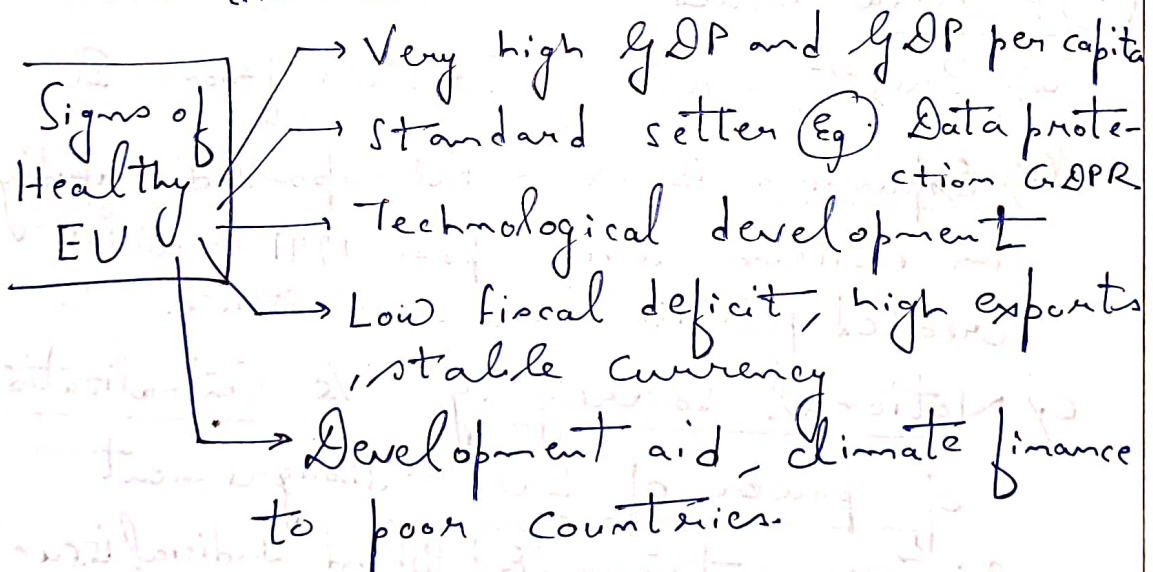 Signs of
Healthy
EU
Very high GDP and GDP per capita
Standard setter Eg. Data prote-
ction GDPR
Technological development
Low fiscal deficit, high exports
, stable currency
Development aid, climate finance
to poor countries.